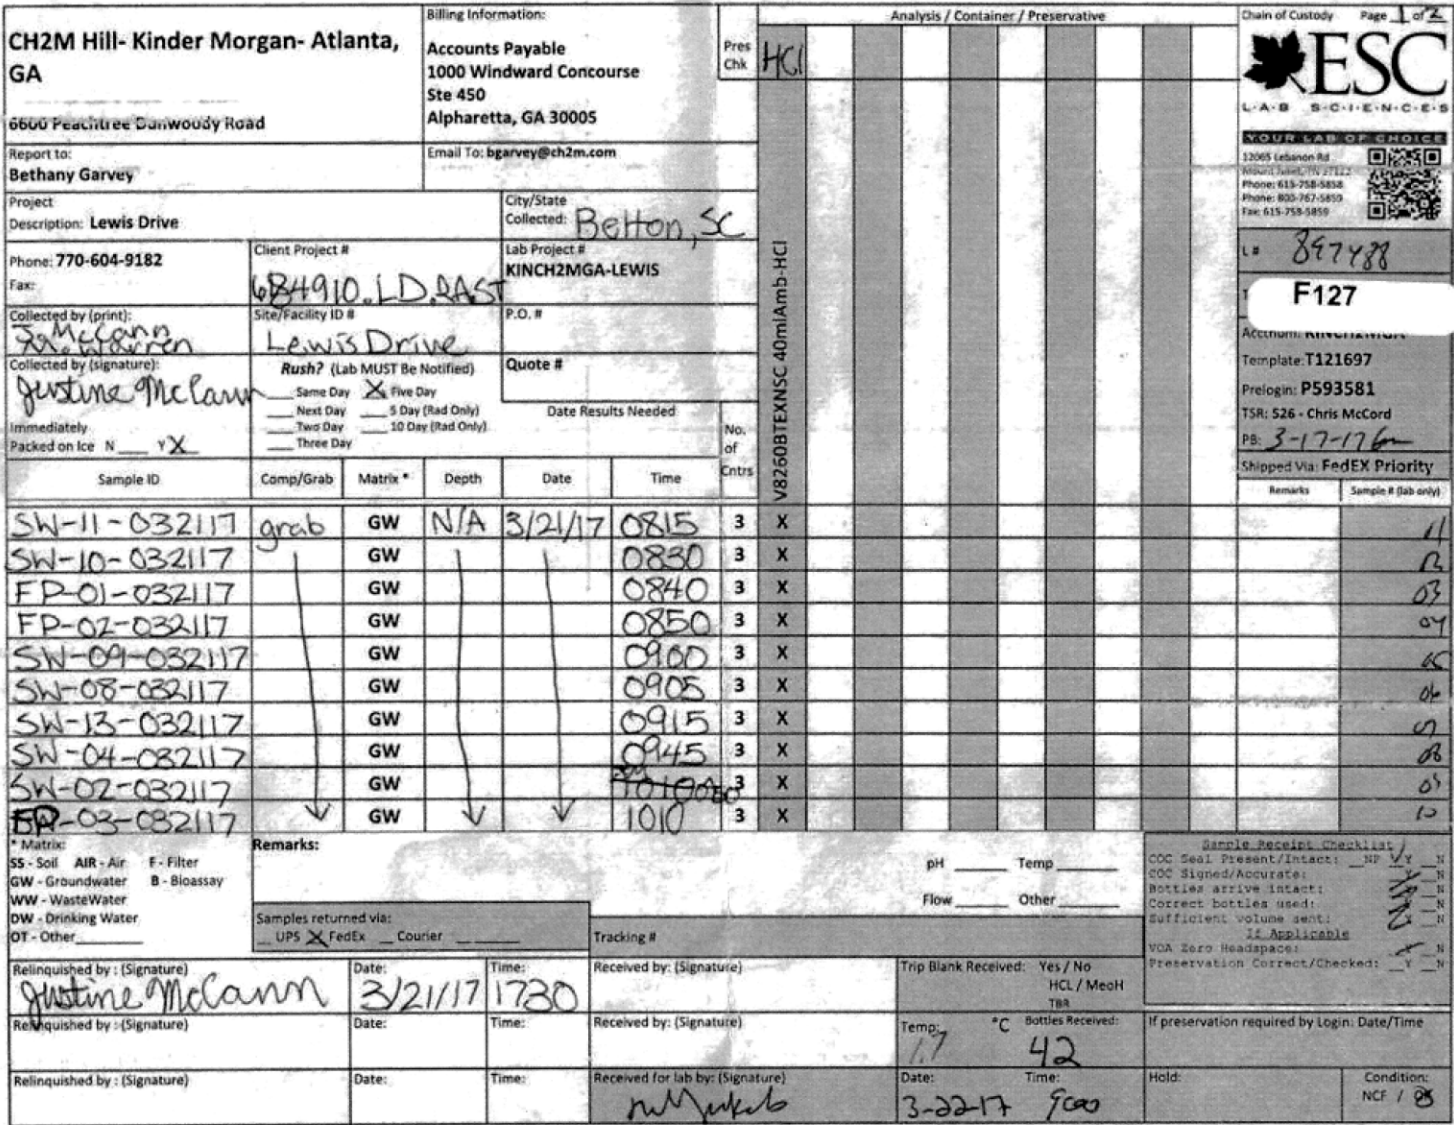 CH2M Hill- Kinder Morgan- Atlanta, GA
6600 Peachtree Dunwoody Road
Billing Information:
Accounts Payable
1000 Windward Concourse
Ste 450
Alpharetta, GA 30005
Pres Chk
HCl
Analysis / Container / Preservative
Chain of Custody Page 1 of 2
ESC
L·A·B S·C·I·E·N·C·E·S
YOUR LAB OF CHOICE
12065 Lebanon Rd
Mount Juliet, TN 37122
Phone: 615-758-5858
Phone: 800-767-5859
Fax: 615-758-5859
Report to:
Bethany Garvey
Email To: bgarvey@ch2m.com
Project
Description: Lewis Drive
City/State
Collected: Belton, SC
Phone: 770-604-9182
Fax:
Client Project #
684910.LD.RAST
Lab Project #
KINCH2MGA-LEWIS
L# 897488
F127
Acctnum: KINCH2MGA
Template: T121697
Prelogin: P593581
TSR: 526 - Chris McCord
PB: 3-17-17
Shipped Via: FedEX Priority
Collected by (print):
J. McCann
M. Warren
Site/Facility ID #
Lewis Drive
P.O. #
Collected by (signature):
Justine McCann
Rush? (Lab MUST Be Notified)
Same Day X Five Day
Next Day 5 Day (Rad Only)
Two Day 10 Day (Rad Only)
Three Day
Quote #
Date Results Needed
Immediately
Packed on Ice N Y X
No. of Cntrs
V8260BTEXNSC 40mlAmb-HCl
Sample ID Comp/Grab Matrix * Depth Date Time Remarks Sample # (lab only)
SW-11-032117 grab GW N/A 3/21/17 0815 3 X
SW-10-032117 GW 0830 3 X
FP-01-032117 GW 0840 3 X 03
FP-02-032117 GW 0850 3 X 04
SW-09-032117 GW 0900 3 X 05
SW-08-032117 GW 0905 3 X 06
SW-13-032117 GW 0915 3 X 07
SW-04-032117 GW 0945 3 X 08
SW-02-032117 GW 3 X 09
-03-032117 GW 1010 3 X 10
* Matrix:
SS - Soil AIR - Air F - Filter
GW - Groundwater B - Bioassay
WW - WasteWater
DW - Drinking Water
OT - Other
Remarks:
Samples returned via:
UPS X FedEx Courier
pH Temp
Flow Other
Tracking #
Sample Receipt Checklist
COC Seal Present/Intact: NP Y N
COC Signed/Accurate: Y N
Bottles arrive intact: Y N
Correct bottles used: Y N
Sufficient volume sent: Y N
If Applicable
VOA Zero Headspace: Y N
Preservation Correct/Checked: Y N
Relinquished by : (Signature)
Justine McCann
Date: 3/21/17
Time: 1730
Received by: (Signature)
Trip Blank Received: Yes / No
HCL / MeoH
TBR
Relinquished by : (Signature)
Date:
Time:
Received by: (Signature)
Temp: 1.7 °C
Bottles Received: 42
If preservation required by Login: Date/Time
Relinquished by : (Signature)
Date:
Time:
Received for lab by: (Signature)
Date: 3-22-17
Time: 900
Hold:
Condition:
NCF / OK